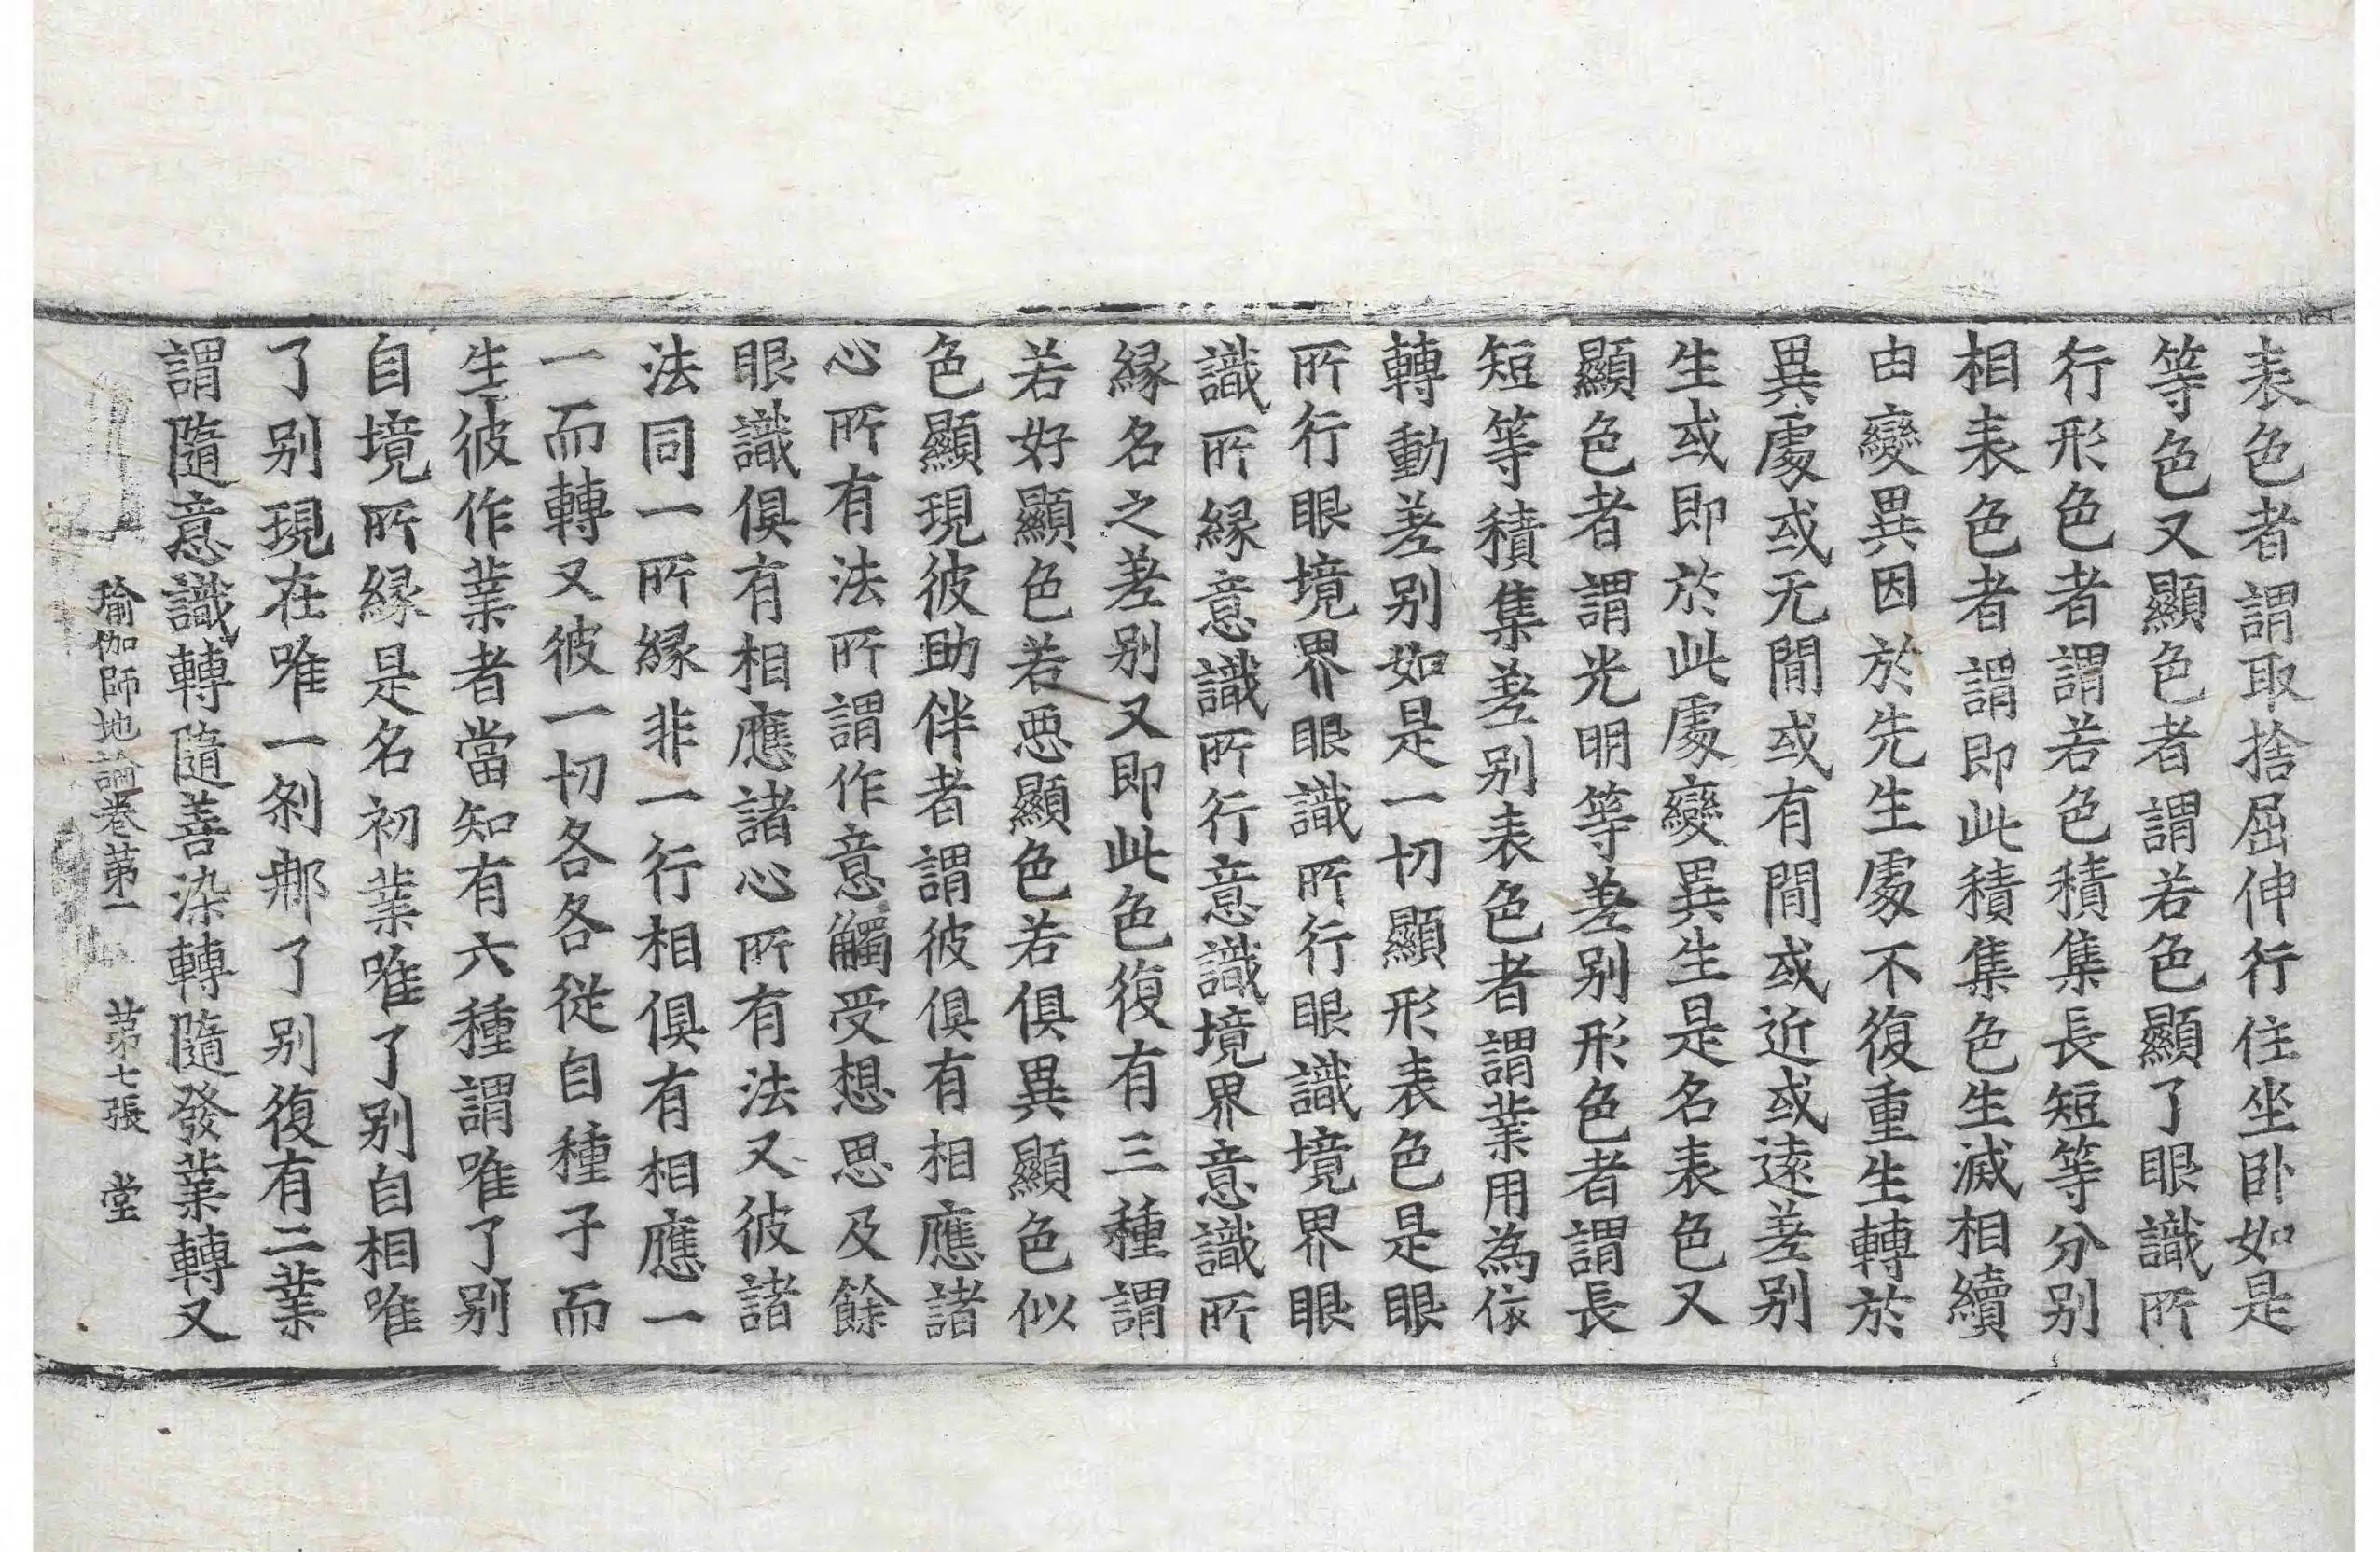 表色者謂取捨屈伸行住坐卧如是
等色又顯色者謂若色顯了眼識所
行形色者謂若色積集長短等分别
相表色者謂即此積集色生滅相續
由變異因於先生處不復重生轉於
異處或无間或有間或近或遠差别
生或即於此處變異生是名表色又
顯色者謂光明等差别形色者謂長
短等積集差别表色者謂業用為依
轉動差别如是一切顯形表色是眼
所行眼境界眼識所行眼識境界眼
識所緣意識所行意識境界意識所
緣名之差别又即此色復有三種謂
若好顯色若惡顯色若俱異顯色似
色顯現彼助伴者謂彼俱有相應諸
心所有法所謂作意觸受想思及餘
眼識俱有相應諸心所有法又彼諸
法同一所緣非一行相俱有相應一
一而轉又彼一切各各從自種子而
生彼作業者當知有六種謂唯了别
自境所緣是名初業唯了别自相唯
了别現在唯一刹那了别復有二業
謂隨意識轉隨善染轉隨發業轉又
瑜伽師地論卷苐一 苐七張 堂